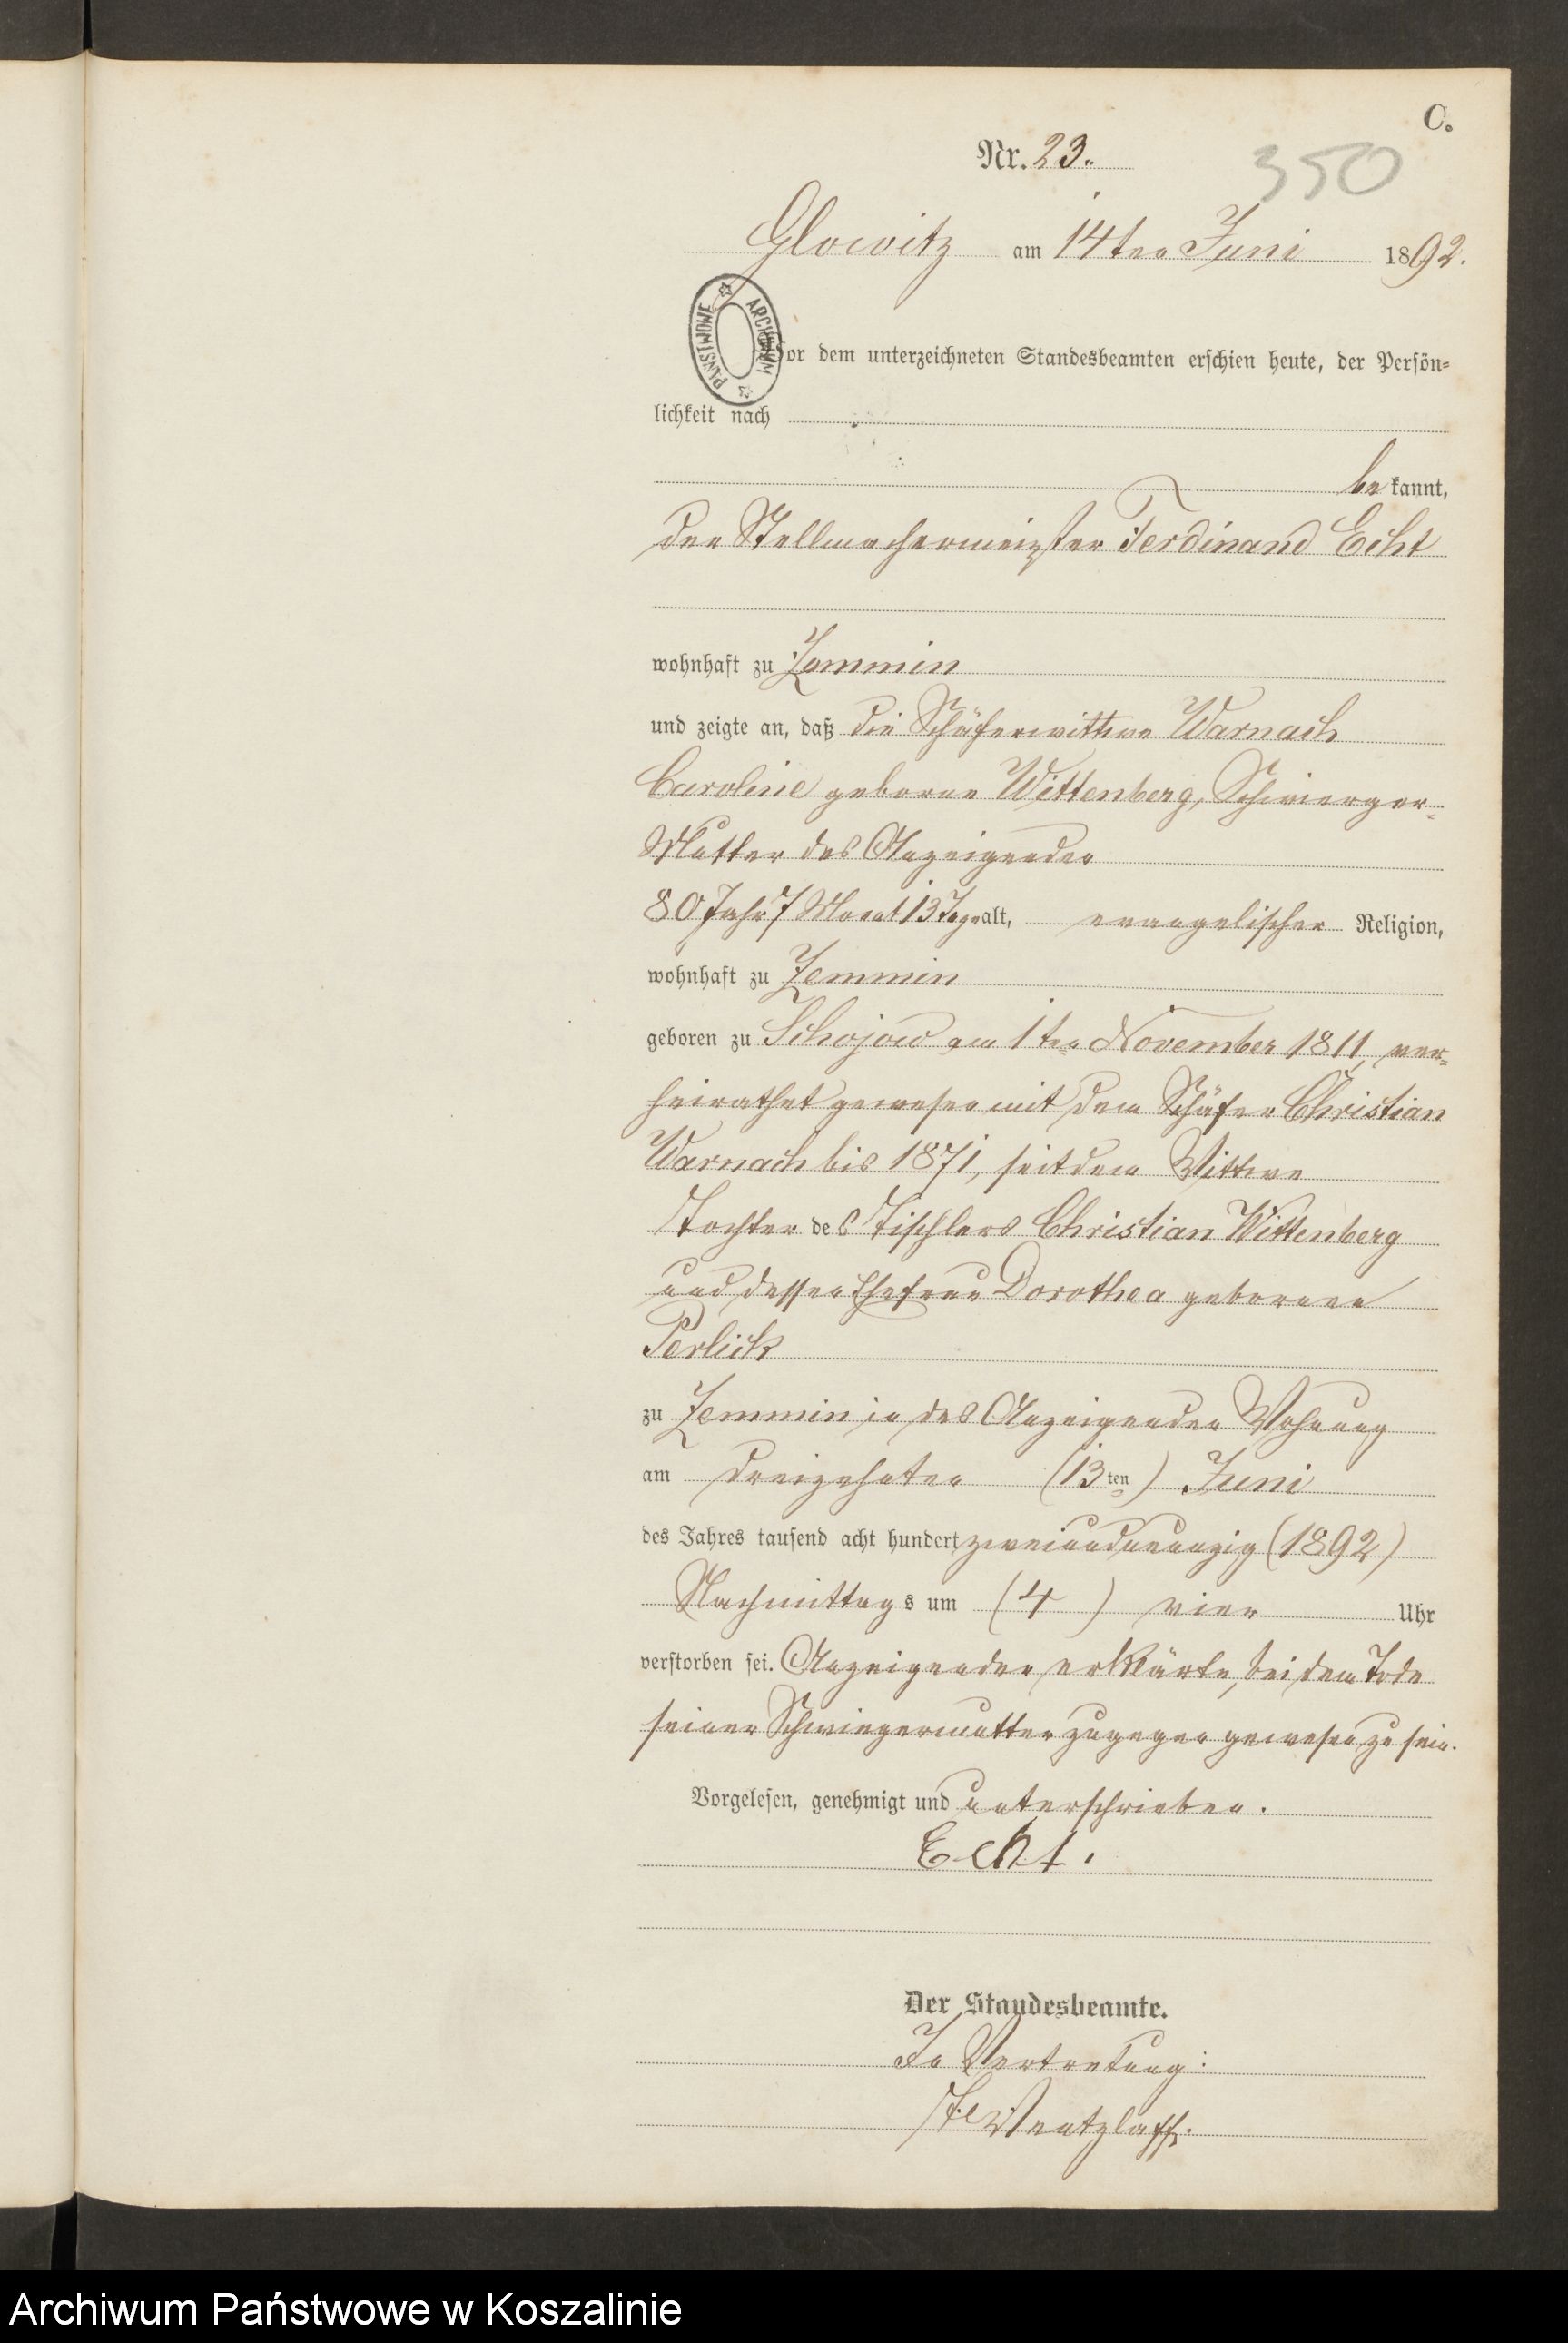 C.
Nr. 23.
350
Glowitz am 14ten Juni 1892.
PAŃSTWOWE ARCHIWUM
Vor dem unterzeichneten Standesbeamten erschien heute, der Persön-
lichkeit nach
be kannt,
der Stellmachermeister Ferdinand Echt
wohnhaft zu Zemmin
und zeigte an, daß die Schäferwittwe Warnach
Caroline geborne Wittenberg, Schwieger-
Mutter des Anzeigenden
80 Jahr 7 Monat 13 Tage alt, evangelischer Religion,
wohnhaft zu Zemmin
geboren zu Schojow am 1ten November 1811, ver-
heirathet gewesen mit dem Schäfer Christian
Warnach bis 1871, seitdem Wittwe
Tochter des Tischlers Christian Wittenberg
und dessen Ehefrau Dorothea gebornen
Perlick
zu Zemmin in des Anzeigenden Wohnung
am dreizehnten (13ten) Juni
des Jahres tausend acht hundert zweiundneunzig (1892)
Nachmittags um (4) vier Uhr
verstorben sei. Anzeigender erklärte, bei dem Tode
seiner Schwiegermutter zugegen gewesen zu sein.
Vorgelesen, genehmigt und unterschrieben.
Echt.
Der Standesbeamte.
In Vertretung:
Wentzlaff.
Archiwum Państwowe w Koszalinie